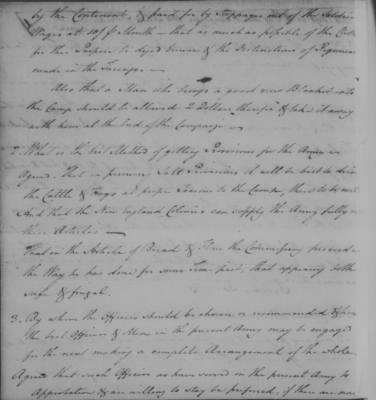 by the Continent, & paid for by Stoppages out of the Soldiers
Wages at 10/ Month — that as much as possible of the Cloth
for this Purpose be dyed brown & the Distinctions of Regiments
made in the Facings. —
Also that a Man who brings a good new Blanket into
the Camp should be allowed 2 Dollars therefor & take it away
with him at the End of the Campaign —
2. What is the best Method of getting Provisions for the Army
Agreed, that in procuring Salt Provisions it will be best to drive
the Cattle & Hogs at proper Season to the Camp, there to be
And that the New England Colonies can supply the Army fully
these Articles —
That in the Article of Bread & Flour the Commissary proceed
the Way he has done for some Time past, that appearing both
safe & frugal.
3. By whom the Officers should be chosen or recommended &
the best Officers & Men in the present Army may be engaged
for the next making a complete Arrangement of the whole
Agreed that such Officers as have served in the present Army to
Approbation & are willing to stay be preferred, if there are